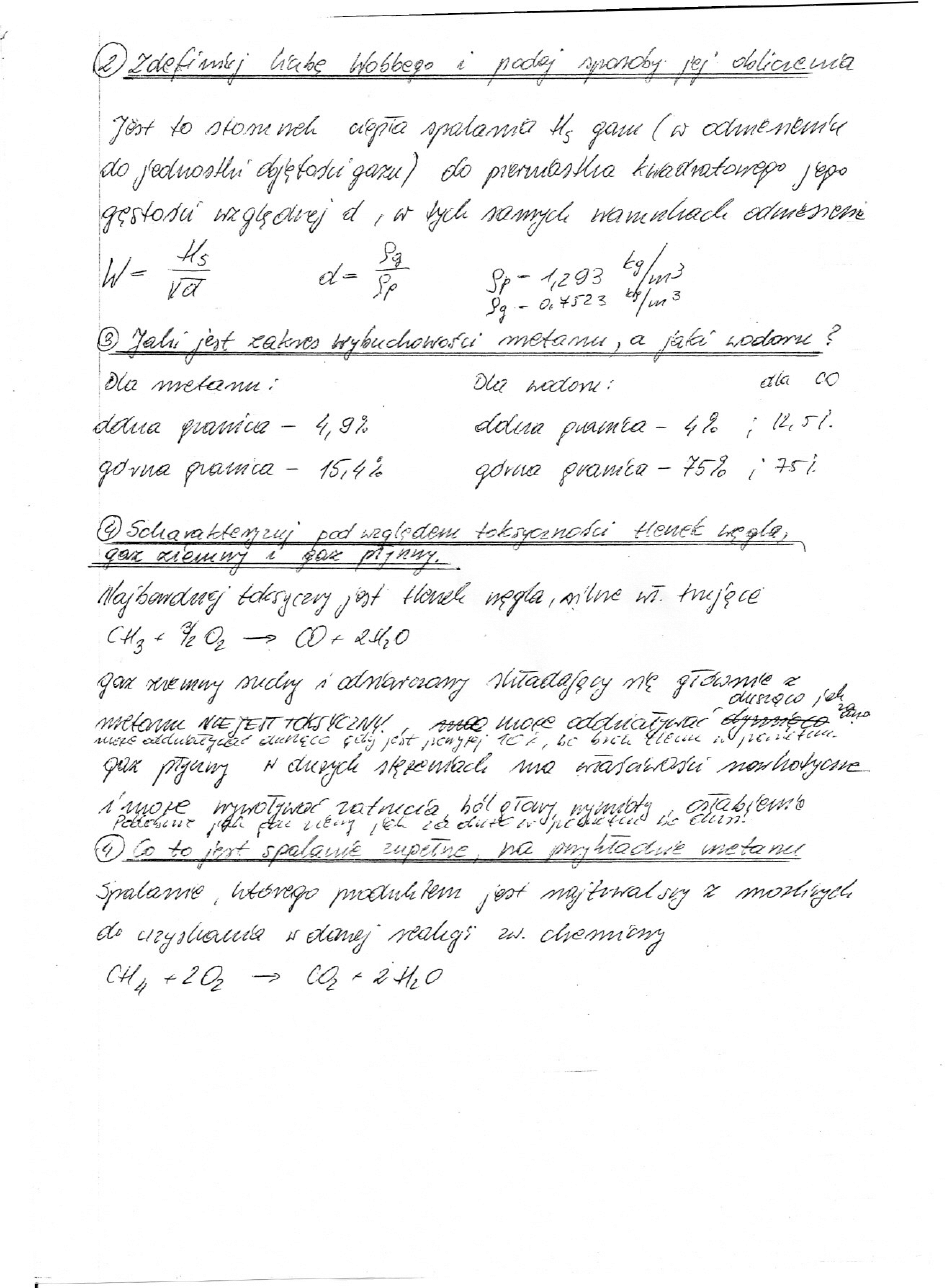 ② Zdefiniuj liczbę Wobbego i podaj sposoby jej obliczenia
Jest to stosunek ciepła spalania Hs gazu (w odniesieniu
do jednostki objętości gazu) do pierwiastka kwadratowego jego
gęstości względnej d, w tych samych warunkach odniesienia
W = Hs/√d   d = ρg/ρp   ρp – 1,293 kg/m³
ρg – 0,7523 kg/m³
③ Jaki jest zakres wybuchowości metanu, a jaki wodoru?
Dla metanu:   Dla wodoru:   dla CO
dolna granica – 4,9%   dolna granica – 4% ; 12,5%
górna granica – 15,4%   górna granica – 75% ; 75%
④ Scharakteryzuj pod względem toksyczności tlenek węgla,
gaz ziemny i gaz płynny.
Najbardziej toksyczny jest tlenek węgla, silne wł. trujące
CH3 + 3/2 O2 → CO + 2H2O
gaz ziemny suchy i odsiarczany składający się głównie z
dusząco jak
metanu NIE JEST TOKSYCZNY!, może oddziaływać
może oddziaływać dusząco gdy jest powyżej 10%, bo brak tlenu w powietrzu
gaz płynny w dużych stężeniach ma właściwości narkotyczne
i może wywoływać zatrucia, ból głowy, wymioty, osłabienie
Podobnie jak gaz jak za dużo w powietrzu to dusi
④ Co to jest spalanie zupełne, na przykładzie metanu
Spalanie, którego produktem jest najtrwalszy z możliwych
do uzyskania w danej reakcji zw. chemiczny
CH4 + 2O2 → CO2 + 2H2O